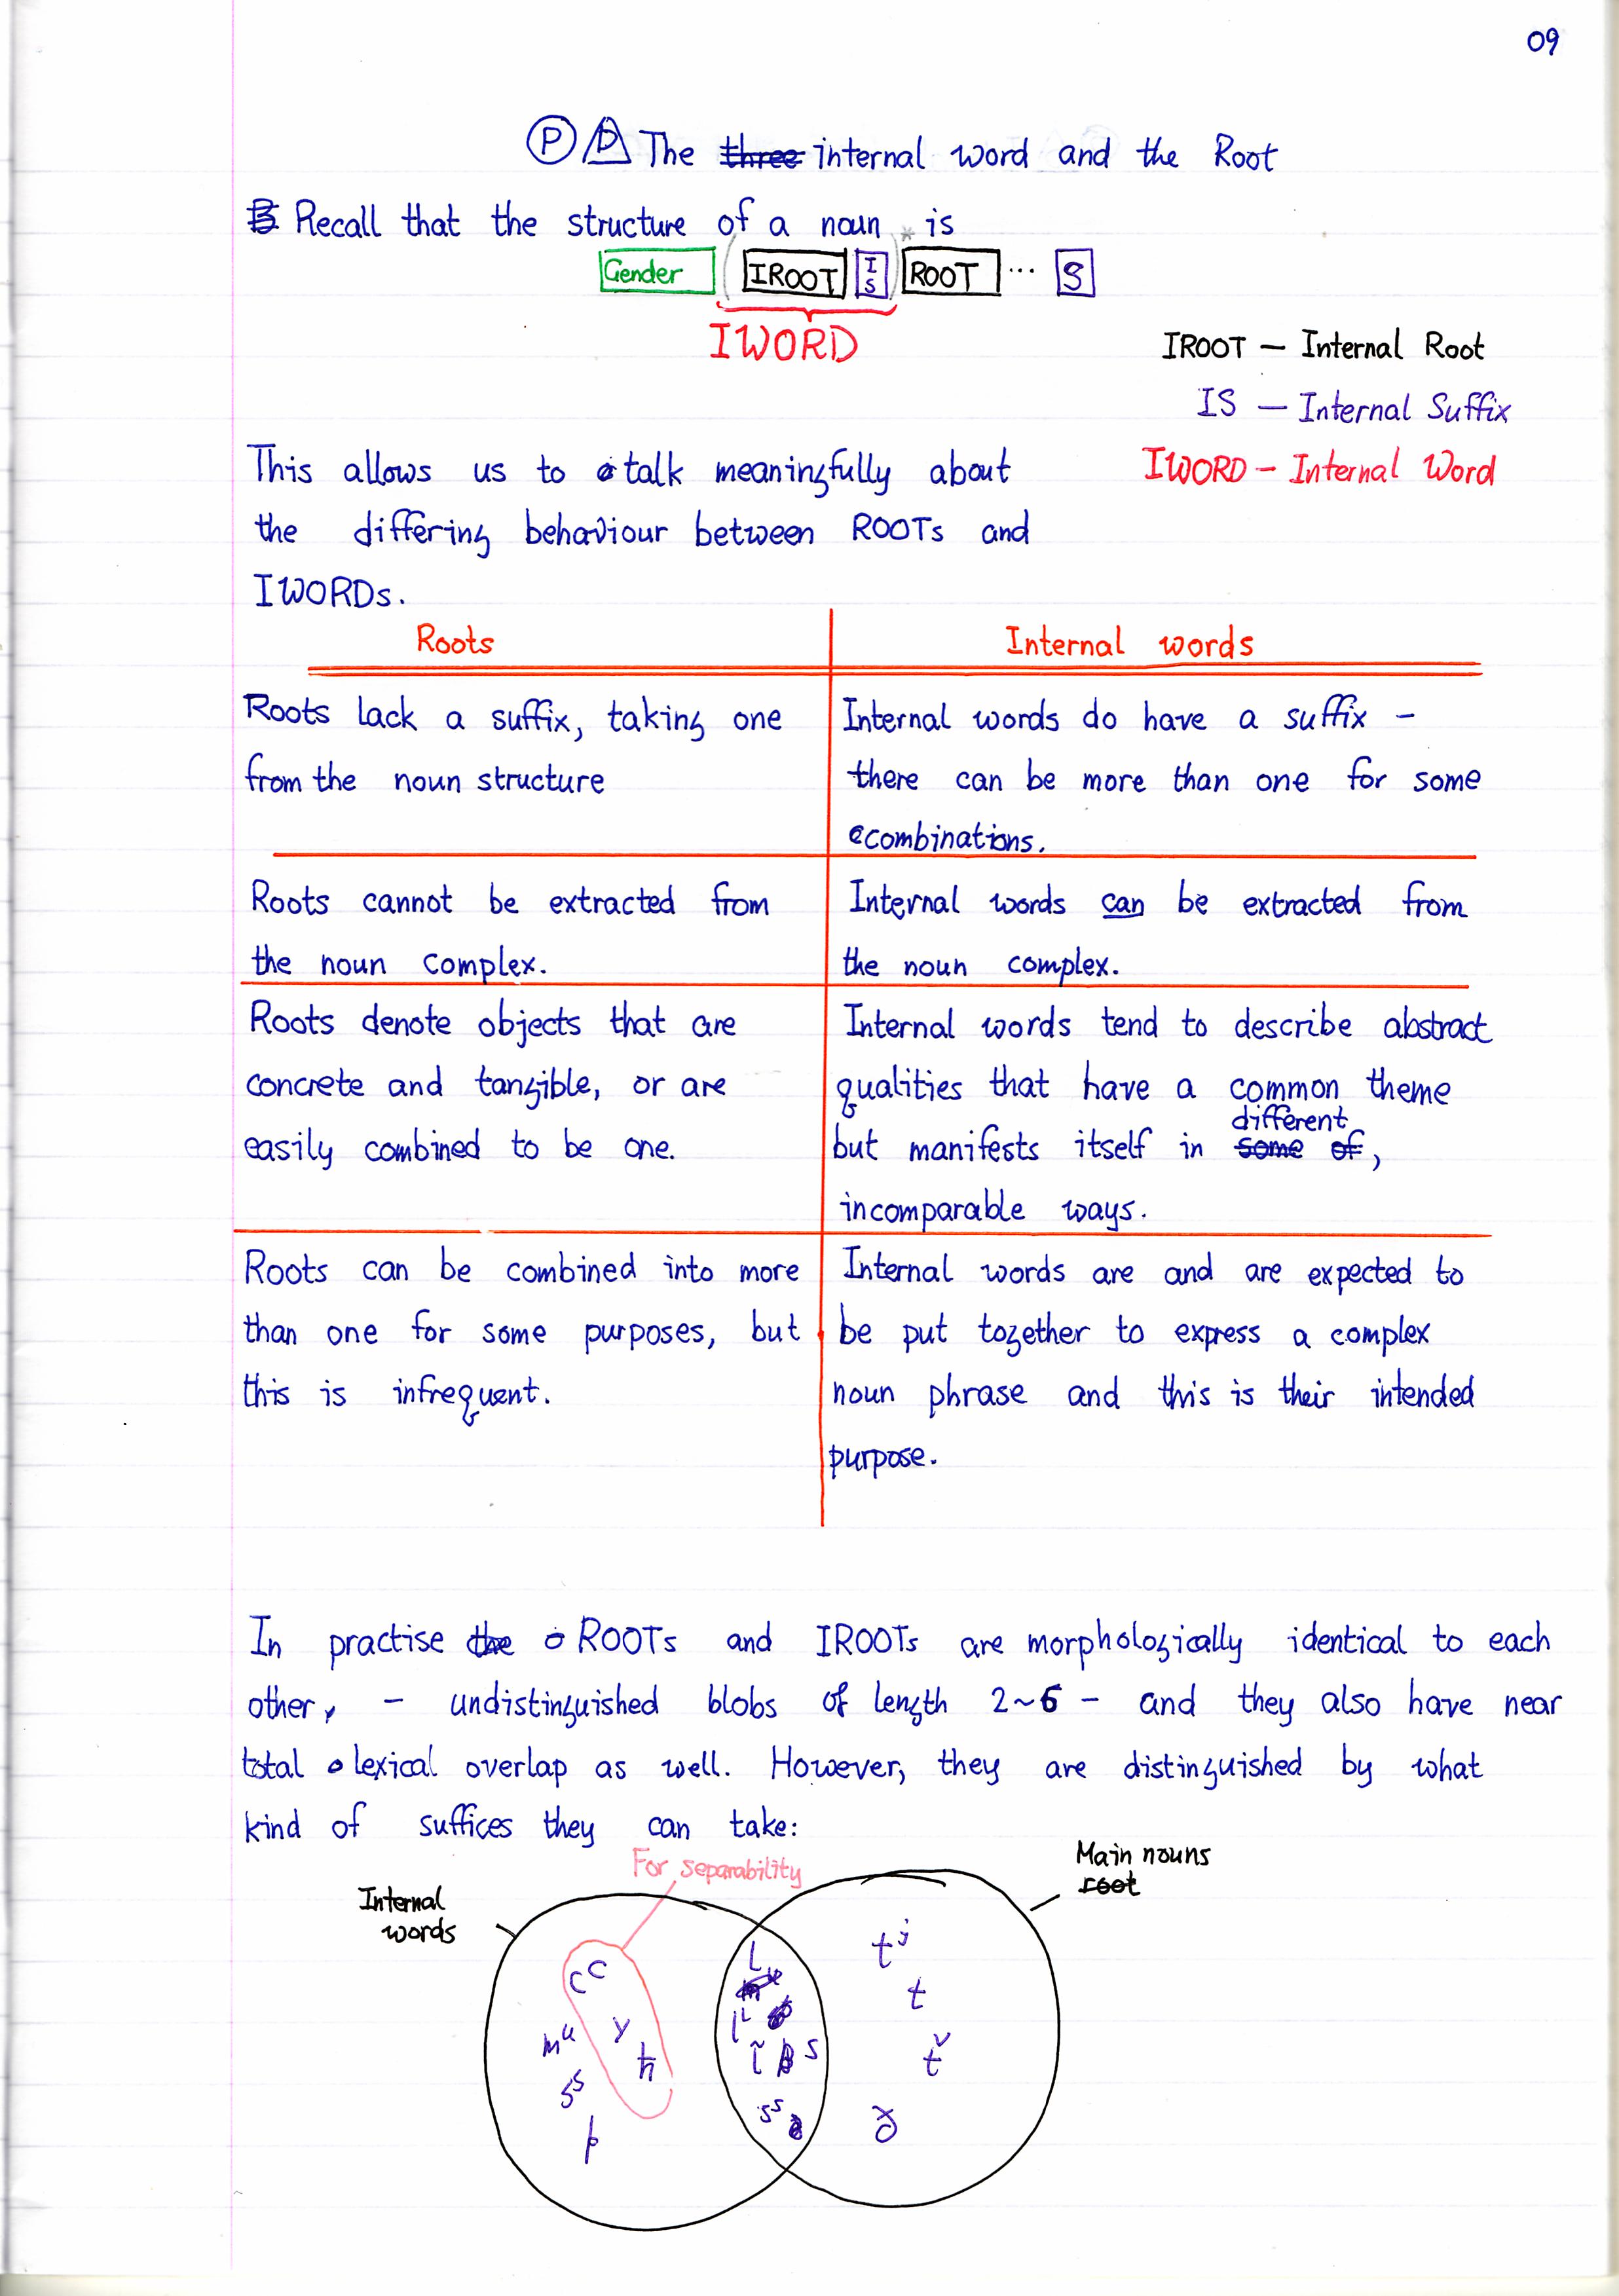 09
Ⓟ D The three internal word and the Root
Recall that the structure of a noun is
Gender ( IROOT IS )* ROOT ... S
IWORD
IROOT — Internal Root
IS — Internal Suffix
IWORD — Internal Word
This allows us to talk meaningfully about
the differing behaviour between ROOTs and
IWORDs.
Roots
Internal words
Roots lack a suffix, taking one
from the noun structure
Internal words do have a suffix –
there can be more than one for some
combinations.
Roots cannot be extracted from
the noun complex.
Internal words can be extracted from
the noun complex.
Roots denote objects that are
concrete and tangible, or are
easily combined to be one.
Internal words tend to describe abstract
qualities that have a common theme
different
but manifests itself in some of,
incomparable ways.
Roots can be combined into more
than one for some purposes, but
this is infrequent.
Internal words are and are expected to
be put together to express a complex
noun phrase and this is their intended
purpose.
In practise the ROOTs and IROOTs are morphologically identical to each
other, – undistinguished blobs of length 2~6 – and they also have near
total lexical overlap as well. However, they are distinguished by what
kind of suffices they can take:
For separability
Internal
words
Main nouns
root
c c
y
ħ
mᵘ
sˢ
þ
L
l̃
s
sˢ
tʲ
t
ť